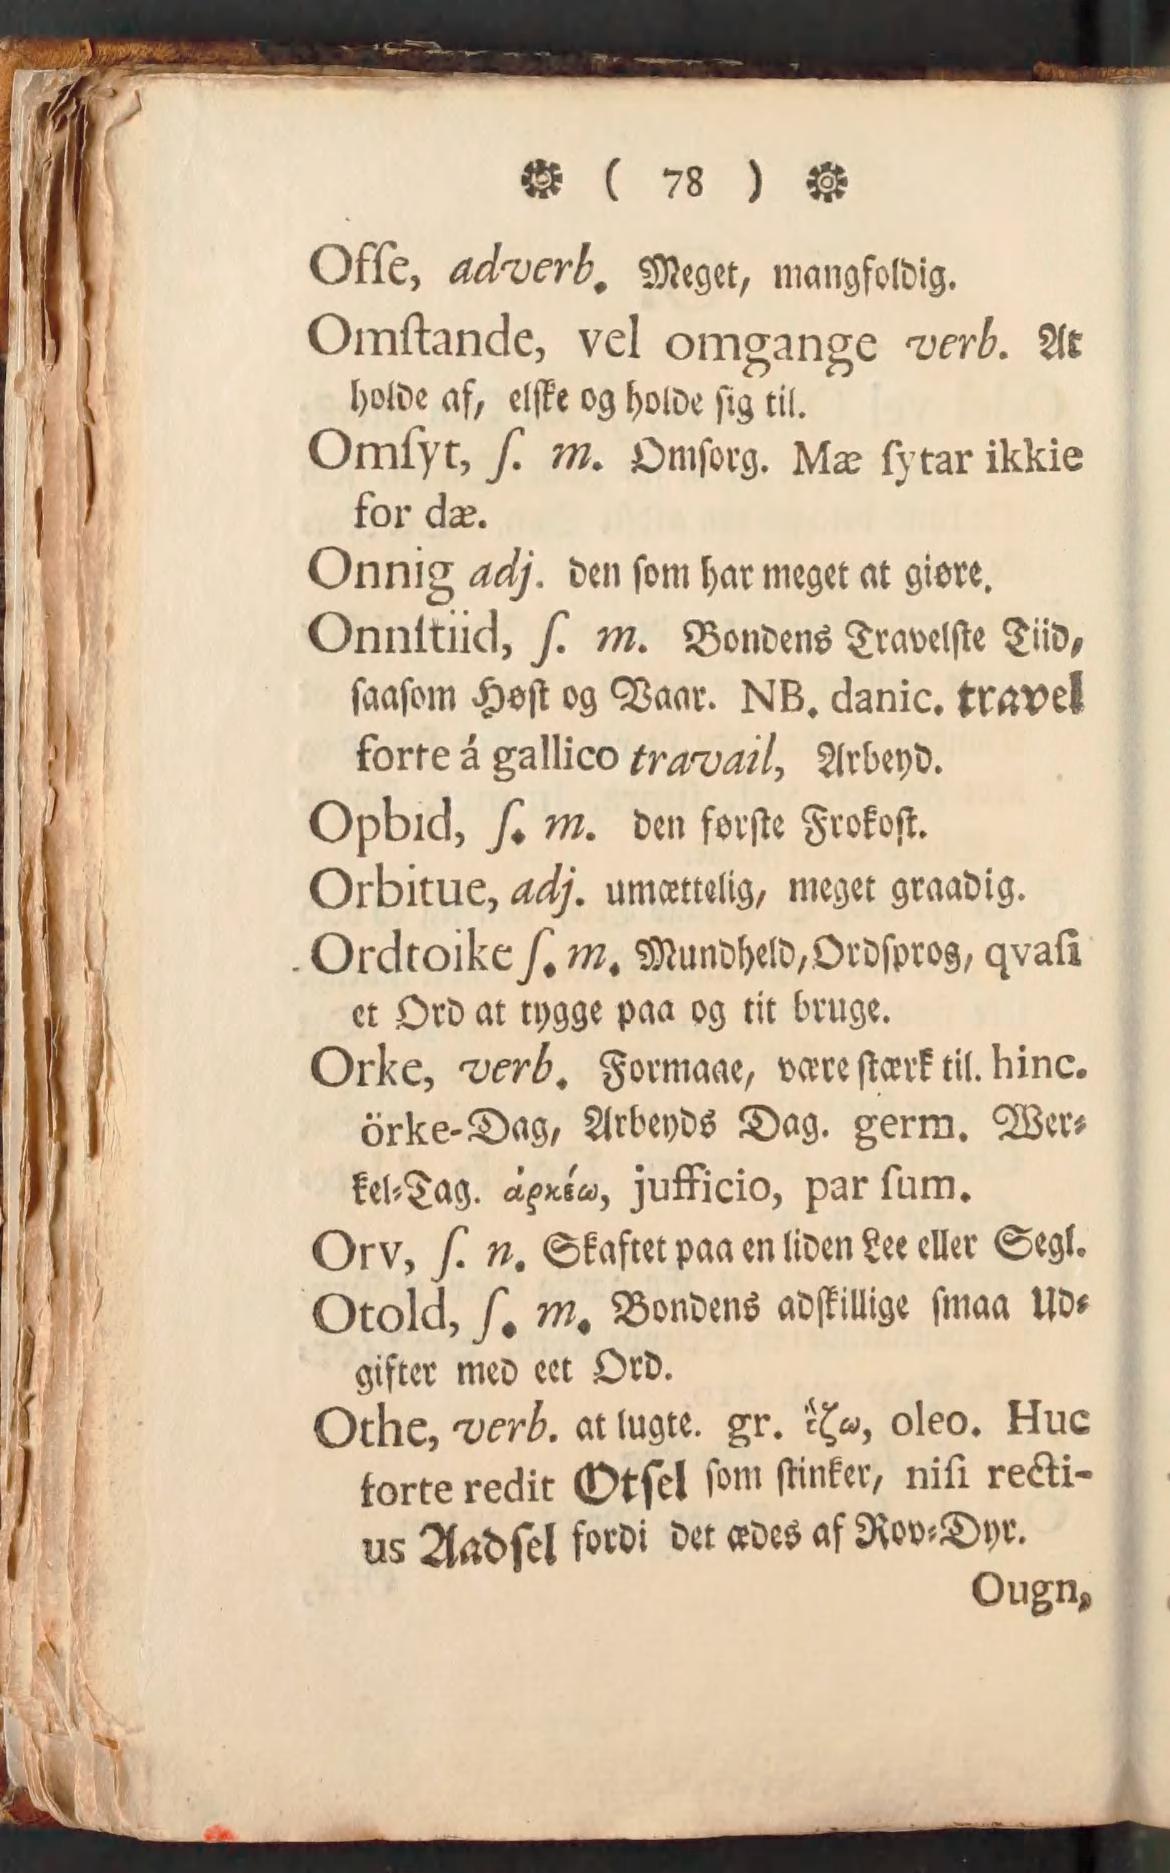 ( 78 )
Offe, adverb. Meget, mangfoldig.
Omſtande, vel omgange verb. At
holde af, elſke og holde ſig til.
Omſyt, ſ. m. Omſorg. Mæ ſytar ikkie
for dæ.
Onnig adj. den ſom har meget at giøre.
Onnſtiid, ſ. m. Bondens Travelſte Tiid,
ſaaſom Høſt og Vaar. NB. danic. travel
forte á gallico travail, Arbeyd.
Opbid, ſ. m. den førſte Frokoſt.
Orbitue, adj. umættelig, meget graadig.
Ordtoike ſ. m. Mundheld, Ordſprog, qvaſi
et Ord at tygge paa og tit bruge.
Orke, verb. Formaae, være ſtærk til. hinc.
örke-Dag, Arbeyds Dag. germ. Wer⸗
kel⸗Tag. ἀρκέω, jufficio, par ſum.
Orv, ſ. n. Skaftet paa en liden Lee eller Segl.
Otold, ſ. m. Bondens adſkillige ſmaa Ud⸗
gifter med eet Ord.
Othe, verb. at lugte. gr. ἔζω, oleo. Huc
forte redit Otſel ſom ſtinker, niſi recti-
us Aadſel fordi det ædes af Rov⸗Dyr.
Ougn,